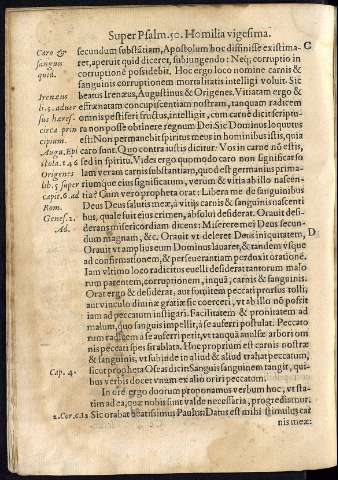 Super Psalm. 50. Homilia vigesima.
Caro & sanguis quid.
secundum substãtiam, Apostolum hoc diffinisse existima- C
ret, aperuit quid diceret, subiungendo: Neq; corruptio in
corruptionẽ possidebit. Hoc ergo loco nomine carnis &
sanguinis corruptionem mortalitatis intelligi voluit. Sic
Irenæus li. 5. aduersus hæres. circa principium.
beatus Irenæus, Augustinus & Origenes. Vitiatam ergo &
effrænatam concupiscentiam nostram, tanquam radicem
omnis pestiferi fructus, intelligit, cum carnẽ dicit scriptu-
ra non posse obtinere regnum Dei. Sic Dominus loquutus
est: Non permanebit spiritus meus in hominibus istis, quia
Aug. Epistola. 146
caro sunt. Quo contra iustis dicitur: Vos in carne nõ estis,
sed in spiritu. Vides ergo quomodo caro non significat so
Origenes lib. 5 super capit. 6. ad Rom.
lam veram carnis substantiam, quod est germanus prima-
riumque eius significatum, verum & vitia ab illo nascẽn-
tia? Cum vero propheta orat: Libera me de sanguinibus
Deus Deus salutis meæ, à vitijs carnis & sanguinis nascenti
Genes. 2.
bus, quale fuit eius crimen, absolui desiderat. Orauit desi-
Ad.
derans misericordiam dicens: Miserere mei Deus secun-
dum magnam, &c. Orauit vt deleret Deus iniquitatem, D
Orauit vt amplius eum Dominus lauaret, & tandem vsque
ad confirmationem, & perseuerantiam perduxit orationẽ.
Iam vltimo loco radicitus euelli desiderat tantorum malo
rum parentem, corruptionem, inquã, carnis & sanguinis.
Orat ergo & desiderat, aut fomitem peccati prorsus tolli;
aut vinculo diuinæ gratiæ sic coerceri, vt ab illo nõ possit
iam ad peccatum instigari. Facilitatem & pronitatem ad
malum, quo sanguis impellit, à se auferri postulat. Peccato
rum radicem à se auferri petit, vt tanquã auulsæ arbori om
nis peccati spes sit ablata. Hoc proprium est carnis nostræ
& sanguinis, vt subinde in aliud & aliud trahat peccatum,
Cap. 4.
sicut propheta Oseas dicit: Sanguis sanguinem tangit, qui-
bus verbis docet vnum ex alio oriri peccatum.
In orẽ ergo duorum proponamus verbum hoc, vt sta-
tim ad ea, quæ nobis sunt valde necessaria, progrediamur.
2. Cor. c. 12
Sic orabat beatissimus Paulus: Datus est mihi stimulus car
nis meæ: